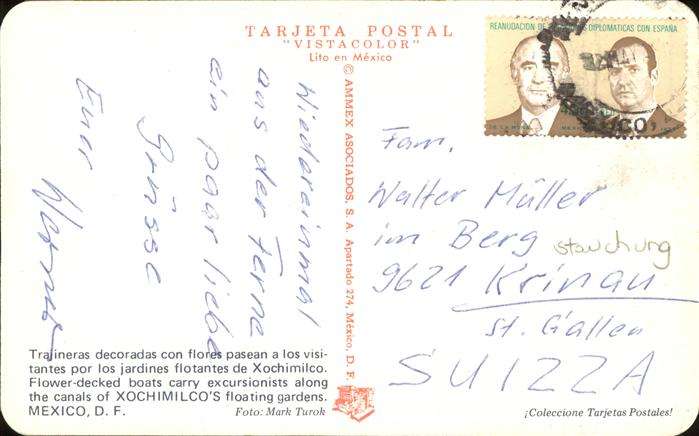 TARJETA POSTAL
"VISTACOLOR"
Lito en México
REANUDACION DE DIPLOMATICAS CON ESPAÑA
© AMMEX ASOCIADOS, S. A. Apartado 274, México, D. F.
Wiedereinmal
aus der Ferne
ein paar liebe
Grüsse
Euer
Werner
Fam.
Walter Müller
im Berg
stauchung
9621 Krinau
St. Gallen
SUIZZA
Trajineras decoradas con flores pasean a los visi-
tantes por los jardines flotantes de Xochimilco.
Flower-decked boats carry excursionists along
the canals of XOCHIMILCO'S floating gardens.
MEXICO, D. F.
Foto: Mark Turok
¡Coleccione Tarjetas Postales!